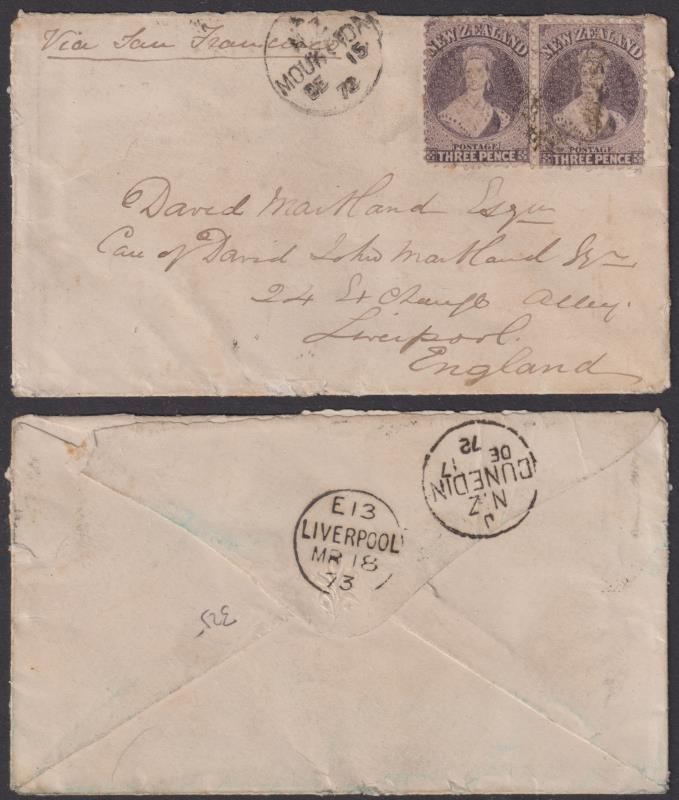 Via San Francisco
N.Z
MOUKTON
DE 15
72
NEW ZEALAND
POSTAGE
THREE PENCE
NEW ZEALAND
POSTAGE
THREE PENCE
David Maitland Esqr
Care of David John Maitland Esqr
24 Exchange Alley.
Liverpool.
England
J
N.Z
DUNEDIN
17
DE
72
E13
LIVERPOOL
MR 18
73
325